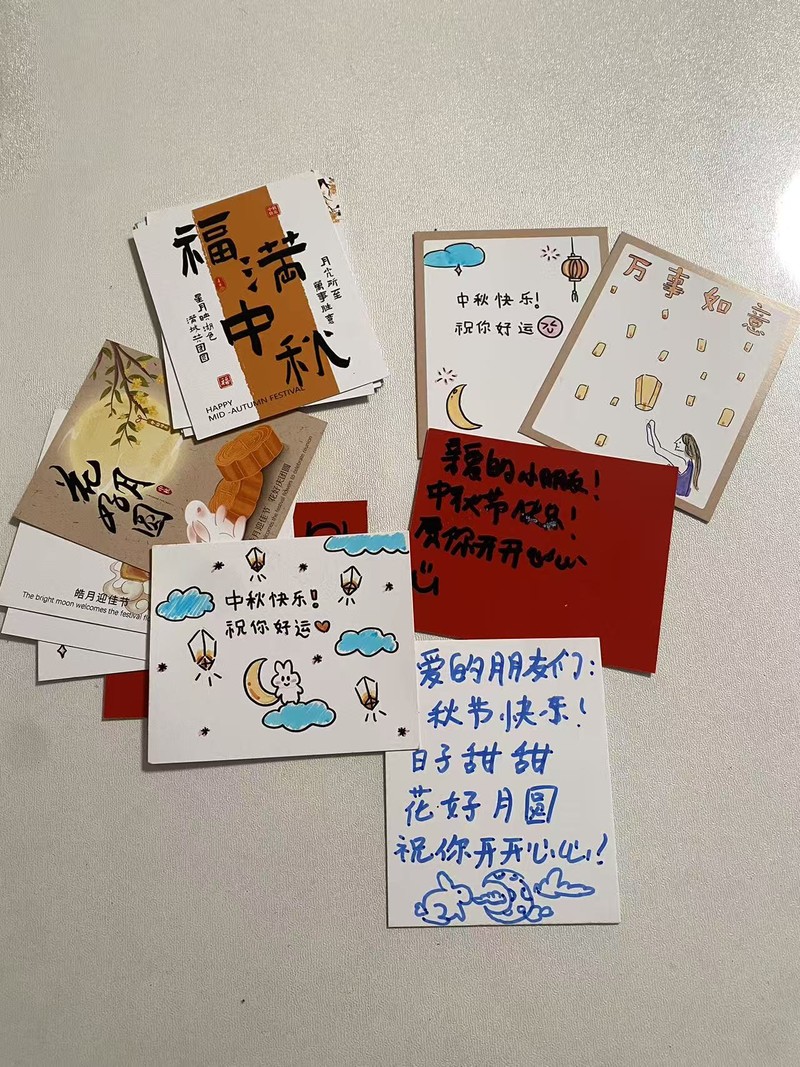 福满中秋
月光所至
萬事胜意
星月映湖色
满城共团圆
HAPPY
MID-AUTUMN FESTIVAL
中秋快乐!
祝你好运
万事如意
花好月圆
月迎佳节 花好庆团圆
皓月迎佳节
The bright moon welcomes the festival
亲爱的小朋友!
中秋节快乐!
愿你开开心心
中秋快乐!
祝你好运
爱的朋友们:
秋节快乐!
日子甜甜
花好月圆
祝你开开心心!